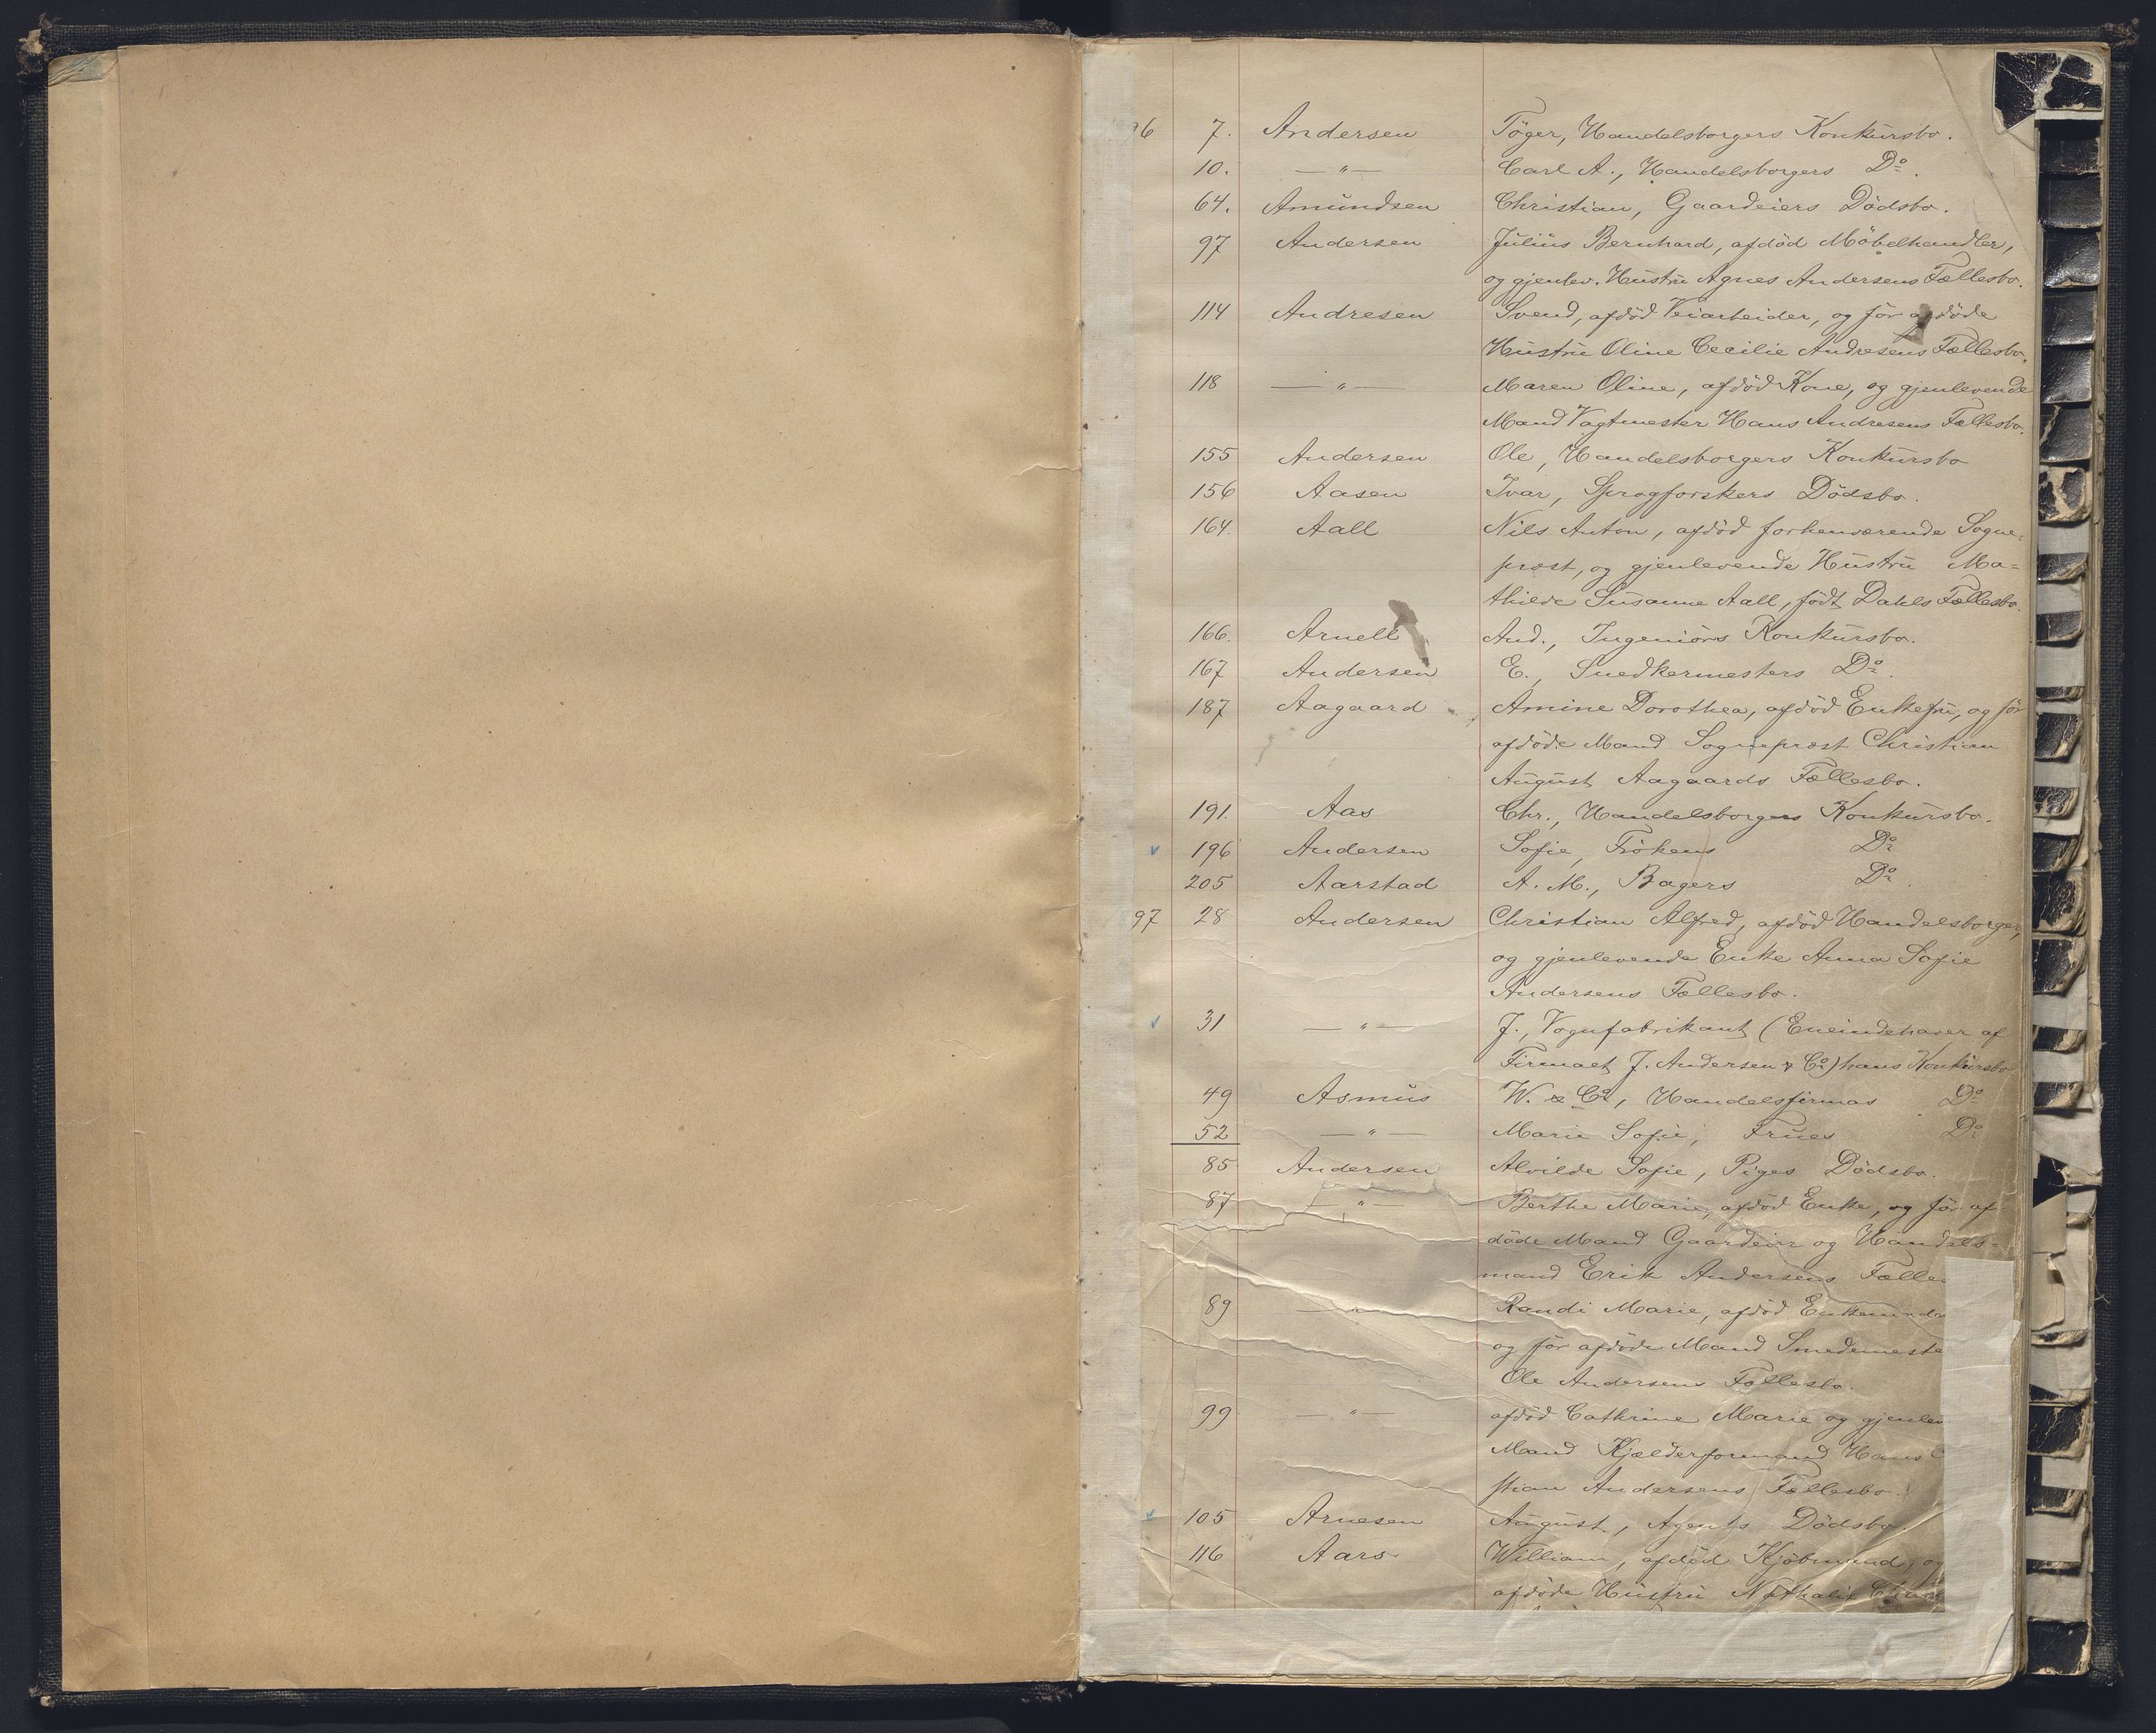 96 7. Andersen Töger, Handelsborgers Konkursbo.
10. — " — Carl A., Handelsborgers Do.
64. Amundsen Christian, Gaardeiers Dödsbo.
97 Andersen Julius Bernhard, afdöd Möbelhandler,
og gjenlev. Hustru Agnes Andersens Fællesbo.
114 Andresen Svend, afdöd Veiarbeider, og för afdöde
Hustru Oline Cecilie Andresens Fællesbo.
118 — " — Maren Oline, afdöd Kone, og gjenlevende
Mand Vagtmester Hans Andresens Fællesbo.
155 Andersen Ole, Handelsborgers Konkursbo
156 Aasen Ivar, Sprogforskers Dödsbo.
164. Aall Nils Anton, afdöd forhenværende Sogne-
præst, og gjenlevende Hustru Ma=
thilde Susanne Aall, födt Dahls Fællesbo.
166. Arnell And., Ingeniörs Konkursbo.
167 Andersen E., Snedkermesters Do.
187 Aagaard Amine Dorothea, afdöd Enkefru, og för
afdöde Mand Sognepræst Christian
August Aagaards Fællesbo.
191. Aas Chr., Handelsborgers Konkursbo.
v 196 Andersen Sofie, Frökens Do
205 Aarstad A. M., Bagers Do.
97 28 Andersen Christian Alfred, afdöd Handelsborger,
og gjenlevende Enke Anna Sofie
Andersens Fællesbo.
v 31 — " — J., Vognfabrikant (Eneindehaver af
Firmaet J. Andersen & Co) hans Konkursbo
49 Asmus W. & Co, Handelsfirmas Do
52 — " — Marie Sofie, Frues Do
85 Andersen Alvilde Sofie, Piges Dödsbo.
87 — " — Berthe Marie, afdöd Enke, og för af-
döde Mand Gaardeier og Handels-
mand Erik Andersens Fælles
89 — " — Randi Marie, afdöd
og för afdöde Mand Smedemeste
Ole Andersens Fællesbo.
99 — " — afdöd Cathrine Marie og gjenlev
Mand Kjælderformand Hans C
stian Andersens Fællesbo.
v 105 Arnesen August, Agents Dödsbo.
116 Aars William, afdöd Kjöbmand, og
afdöde Hustru Nathalie